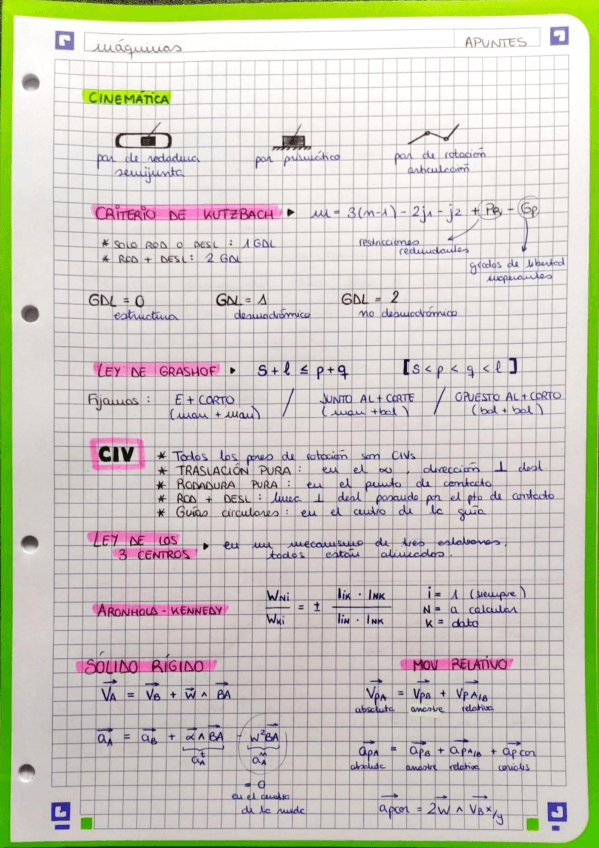 máquinas
APUNTES
CINEMÁTICA
par de rodadura
semijunta
par prismático
par de rotación
articulación
CRITERIO DE KUTZBACH ▶ m = 3(n-1) - 2j1 - j2 + PR - Gp
* SOLO ROD O DESL : 1 GDL
* ROD + DESL: 2 GDL
restricciones
redundantes
grados de libertad
inoperantes
GDL = 0
estructura
GDL = 1
desmodrómico
GDL = 2
no desmodrómico
LEY DE GRASHOF ▶ s + l ≤ p + q [s < p < q < l]
Fijamos : E + CORTO / JUNTO AL + CORTE / OPUESTO AL + CORTO
(man + man) (man + bal) (bal + bal)
CIV
* Todos los pares de rotación son CIVs
* TRASLACIÓN PURA : en el ∞, dirección ⊥ desl
* RODADURA PURA : en el punto de contacto
* ROD + DESL : línea ⊥ desl pasando por el pto de contacto
* Guías circulares : en el centro de la guía
LEY DE LOS
3 CENTROS ▶ en un mecanismo de tres eslabones,
todos están alineados.
ARONHOLD - KENNEDY
WNi / WKi = ± IiK · INK / IiN · INK
i = 1 (siempre)
N = a calcular
K = dato
SÓLIDO RÍGIDO
VA = VB + W ∧ BA
aA = aB + α ∧ BA - W²BA
aAt
aAn
= 0
en el centro
de la rueda
MOV RELATIVO
VPA = VPB + VPA/B
absoluta arrastre relativa
aPA = aPB + aPA/B + apcor
absoluta arrastre relativa coriolis
apcor = 2W ∧ VBx/y